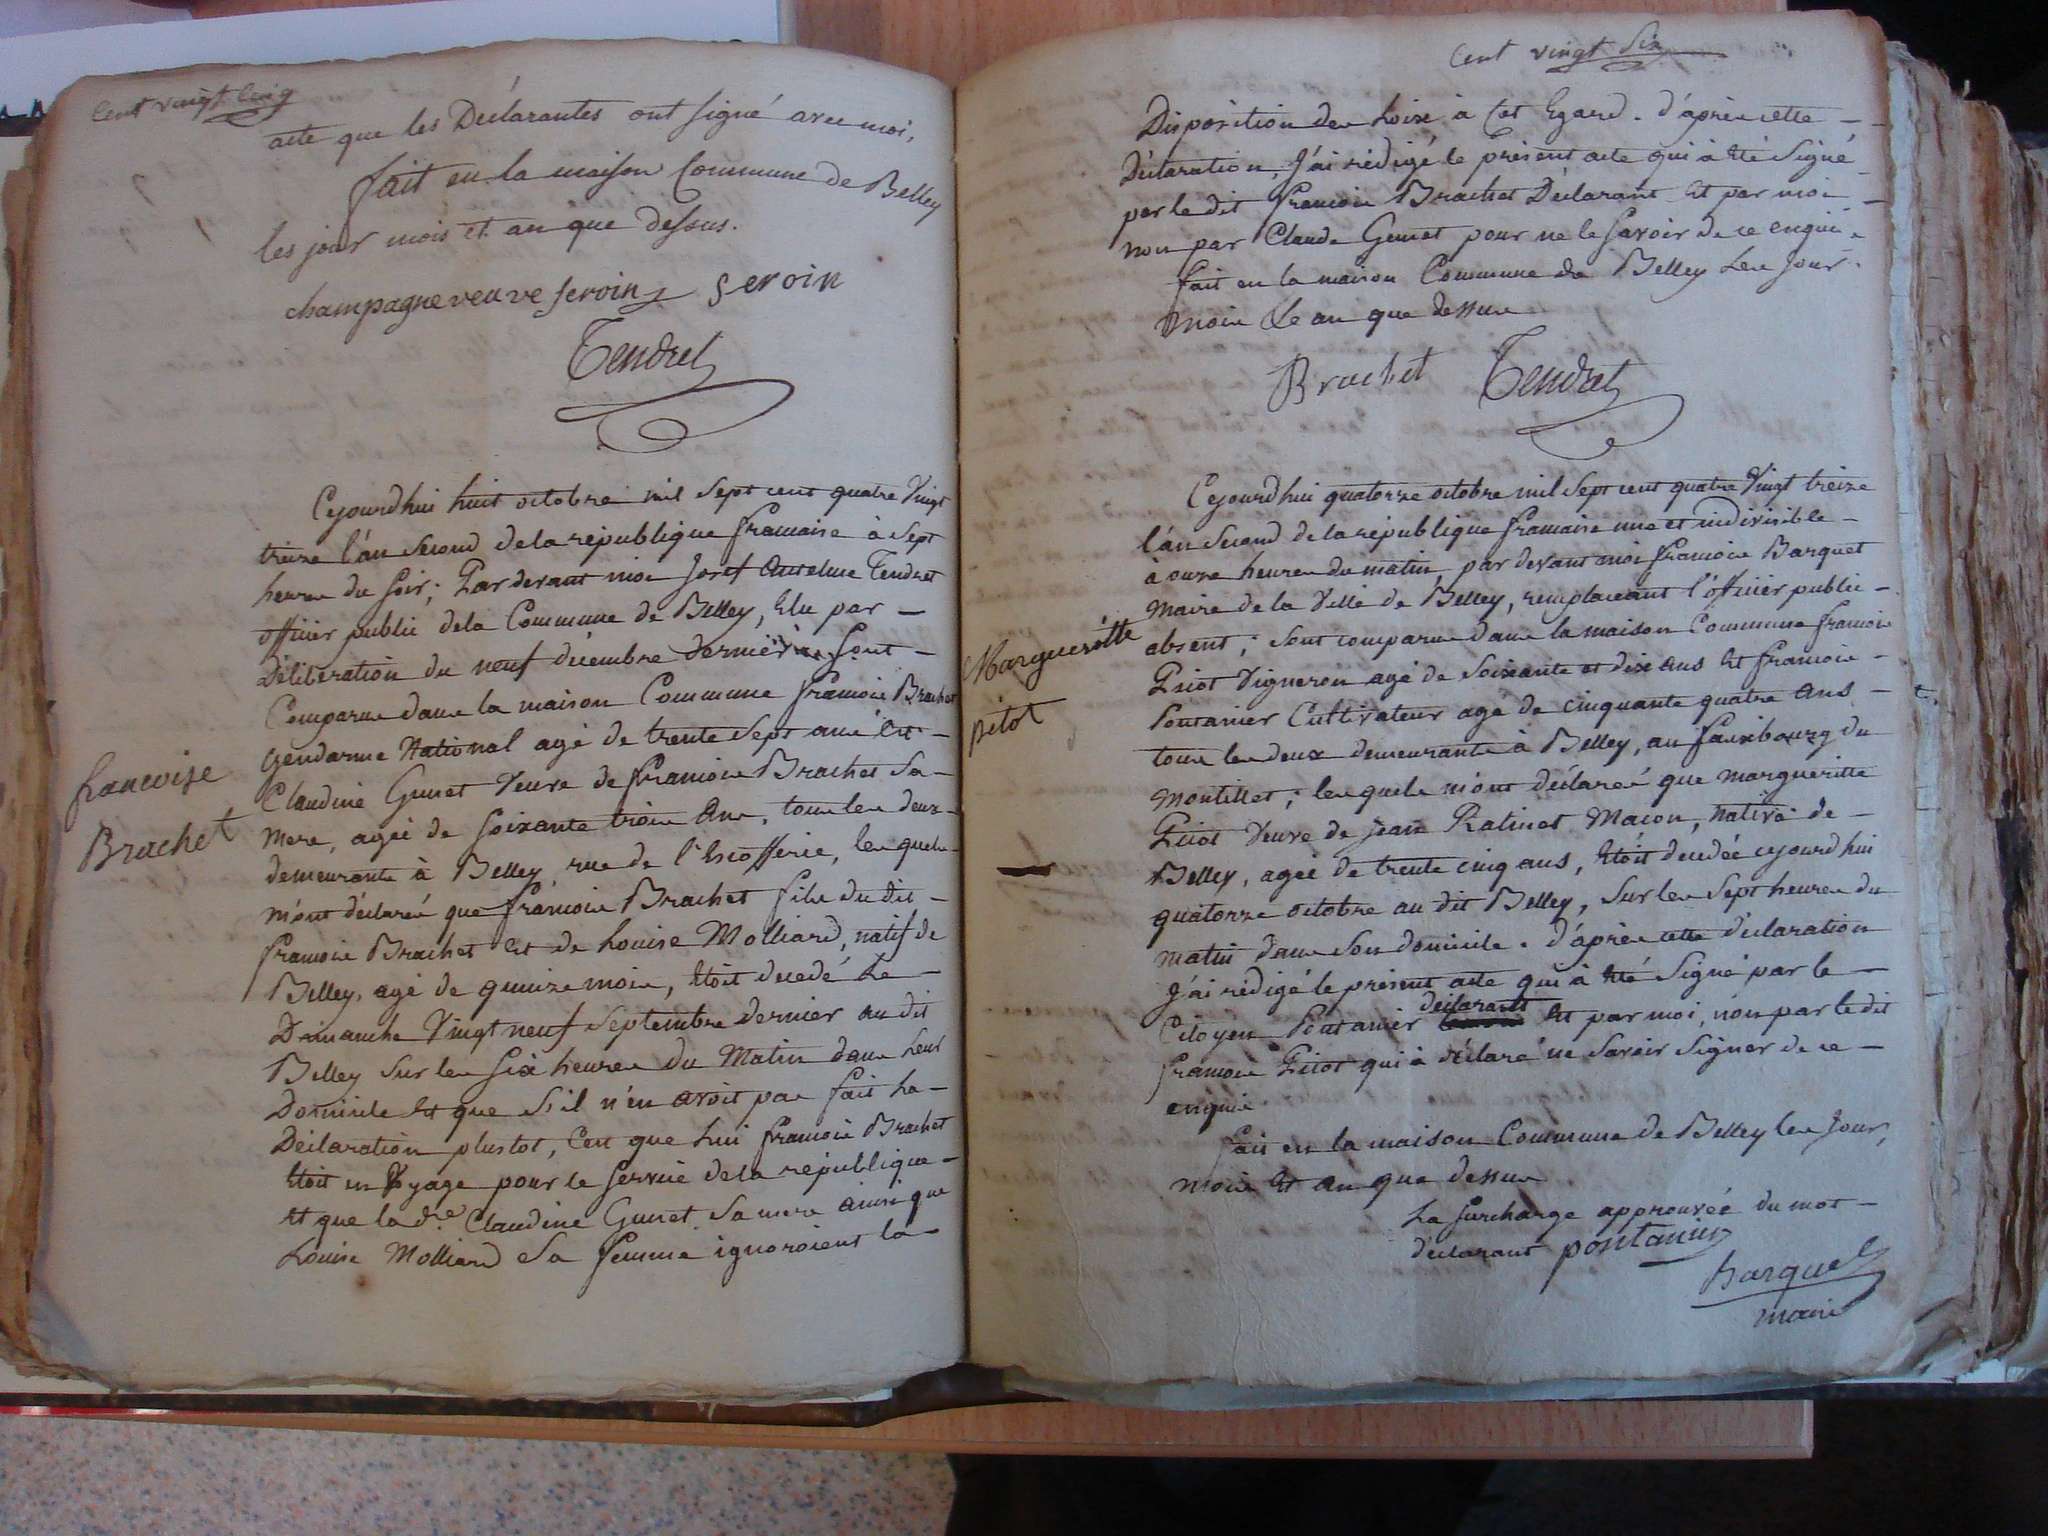 Cent vingt Cinq
acte que les Déclarantes ont signé avec moi,
fait en la maison Commune de Belley
les jour mois et an que dessus.
champagne veuve seroin seroin
Tendret
Cejourdhui huit octobre mil sept cent quatre Vingt
treize l'an second de la république francaise à sept
heures du soir; Pardevant moi Josef Anselme Tendret
officier public de la Commune de Belley, Elu par
Déliberation du neuf décembre dernier sont
Comparus dans la maison Commune francois Brachet
Gendarme National agé de trente sept ans Et
Claudine Gunet Veuve de francois Brachet Sa
Mere, ageé de soixante trois Ans, tous les deux
demeurants à Belley, rue de l'Escofferie, lesquels
m'ont déclaré que francois Brachet fils du dit
francois Brachet Et de Louise Molliard, natif de
Belley, agé de quinze mois, Etoit decedé Le
Dimanche Vingt neuf septembre dernier au dit
Belley sur les six heures du Matin dans Leur
Domicile Et que s'il n'en avoit pas fait La
Déclaration plustot, C'est que lui francois Brachet
Etoit en Voyage pour le service de la république
Et que la de. Claudine Gunet sa mere ainsi que
Louise Molliard Sa femme ignoroient la
francoise
Brachet
Cent vingt Six
Disposition des Loix à Cet Egard. d'après cette
Déclaration, J'ai rédigé le présent acte qui à Eté Signé
par le dit francois Brachet Déclarant Et par moi
non par Claude Gunet pour ne le savoir de ce enquis
fait en la maison Commune de Belley Les Jour
mois & an que dessus
Brachet Tendret
Cejourdhui quatorze octobre mil sept cent quatre Vingt treize
l'an second de la république francaise une et indivisible
à onze heures du matin, par devant moi francois Barquet
Maire de la Ville de Belley, remplaceant l'officier public
absent; sont comparus dans la maison Commune francois
Pitot Vigneron agé de soixante et dix ans Et francois
Pontanier Cultivateur agé de cinquante quatre ans
tous les deux demeurants à Belley, au fauxbourg du
Montillet; lesquels m'ont déclaré que margueritte
Pitot Veuve de jean Ratinet Macon, native de
Belley, ageé de trente cinq ans, Etoit decedée cejourdhui
quatorze octobre au dit Belley, Sur les sept heures du
matin dans son domicile. d'après cette déclaration
J'ai rédigé le présent acte qui à Eté Signé par le
déclarant
Citoyen Pontanier Et par moi, non par le dit
francois Pitot qui à déclaré ne savoir signer de ce
enquis
fait en la maison Commune de Belley les Jour,
mois Et an que dessus
La surcharge approuveé du mot
déclarant pontanier
Barquet
maire
Margueritte
pitot